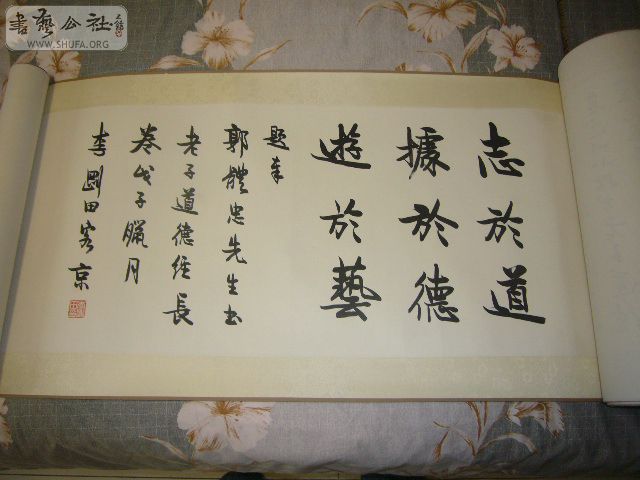 志於道
據於德
遊於藝
題奉
郭體忠先生書
老子道德經長
卷戊子臘月
李剛田客京
書藝公社
WWW.SHUFA.ORG